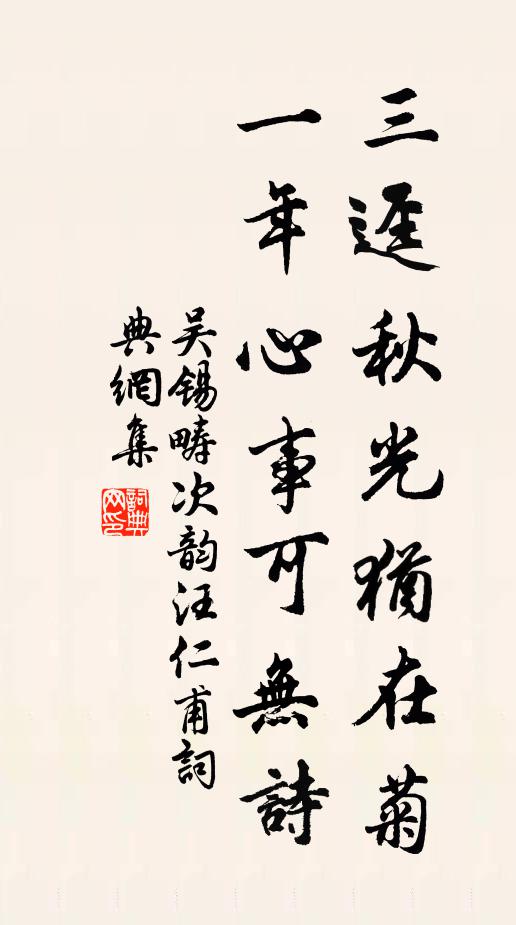 三逕秋光猶在菊
一年心事可無詩
吴錫疇次韵汪仁甫詞
典網集
詞典
网印